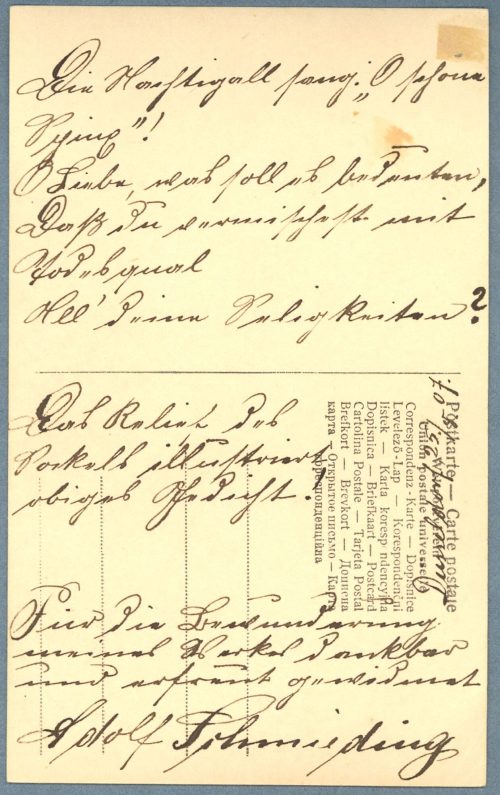 Die Nachtigall sang: „O schöne
Spinx"!
O Liebe, was soll es bedeuten,
Daß du vermischest mit
Todesqual
All' deine Seligkeiten?
Das Relief des
Sockels illustriert
obiges Gedicht.
Für die Bewunderung
meines Werkes dankbar
und erfreut gewidmet
Adolf Schmieding
Postkarte — Carte postale
Union postale universelle
Correspondenz-Karte — Dopisnice
Levelező-Lap — Korespondenční
lístek — Karta korespondencyjna
Dopisnica — Briefkaart — Postcard
Cartolina Postale — Tarjeta Postal
Brefkort — Brevkort — Дописна
карта — Открытое письмо — Карта
корреспонденційна